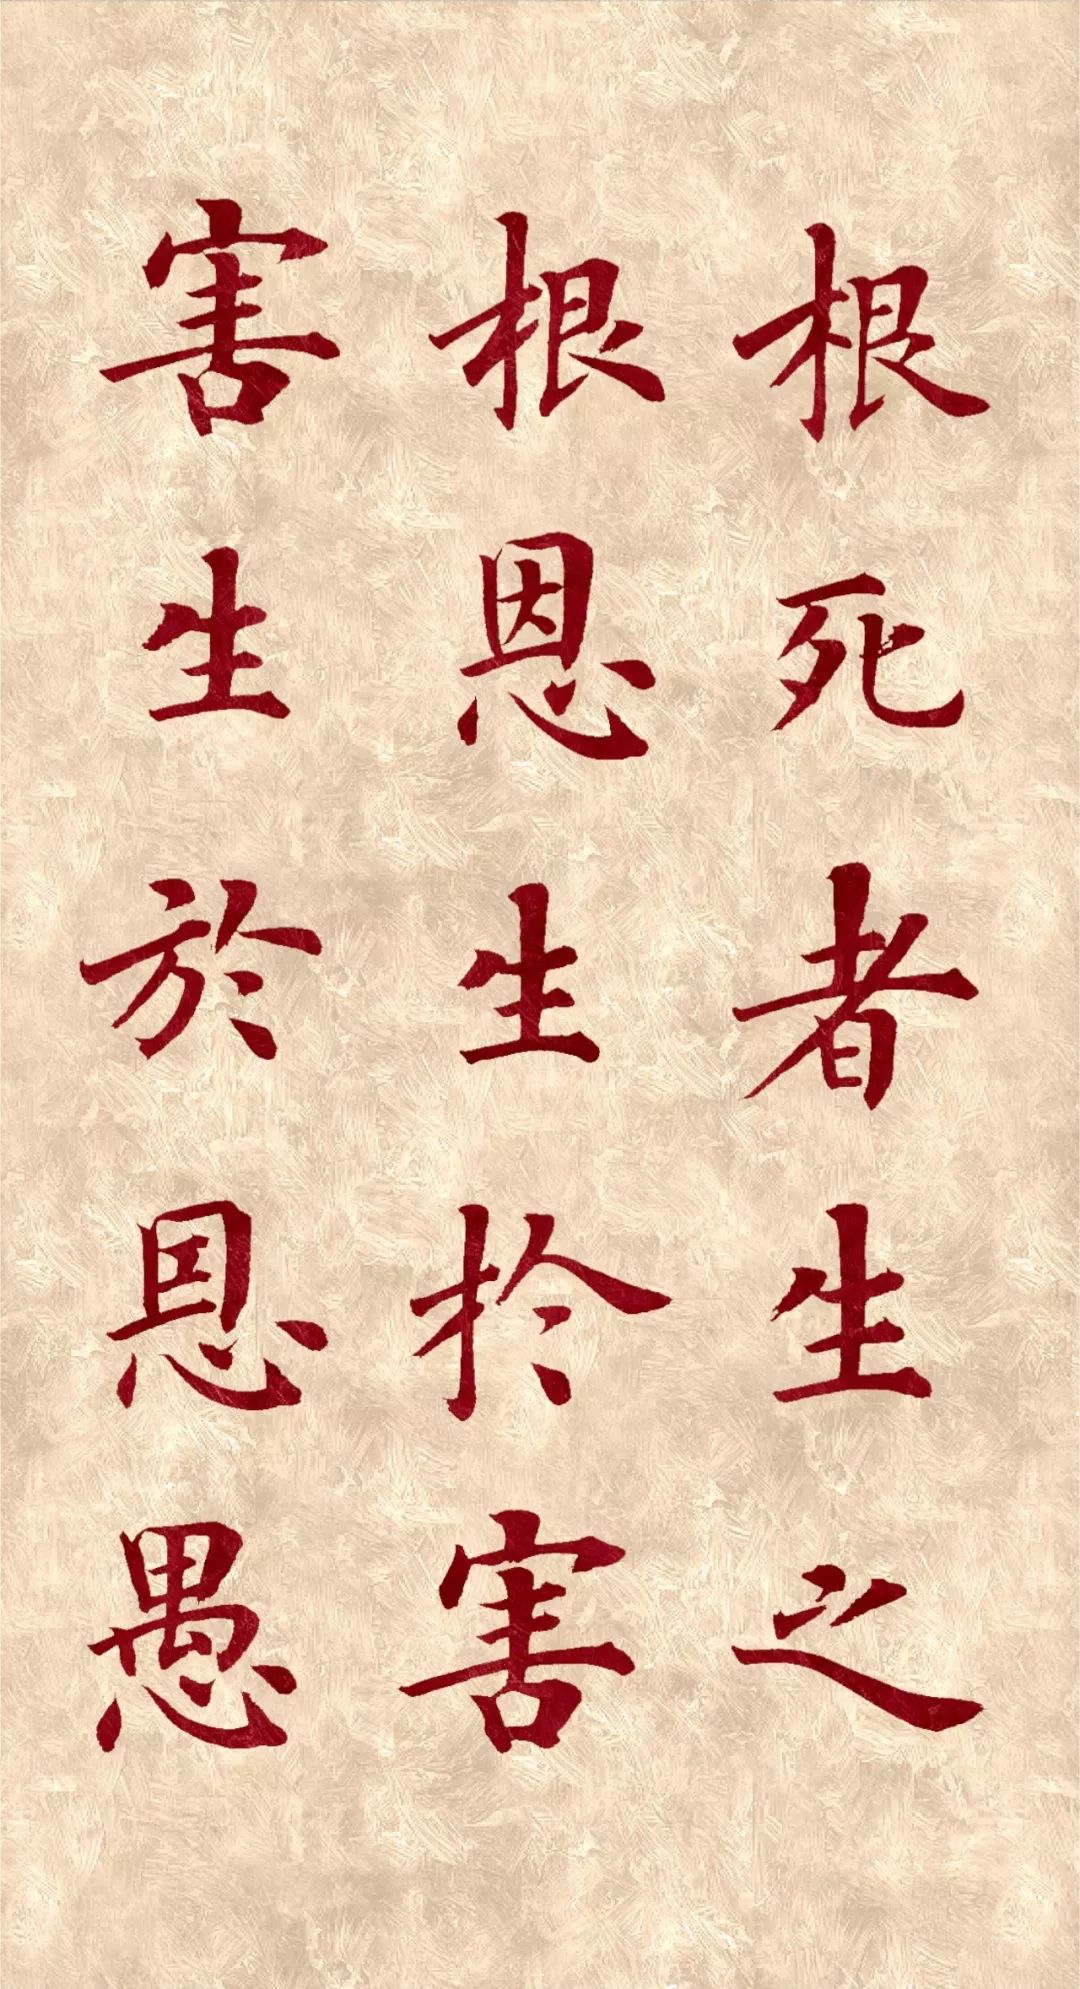 根死者生之
根恩生於害
害生於恩愚